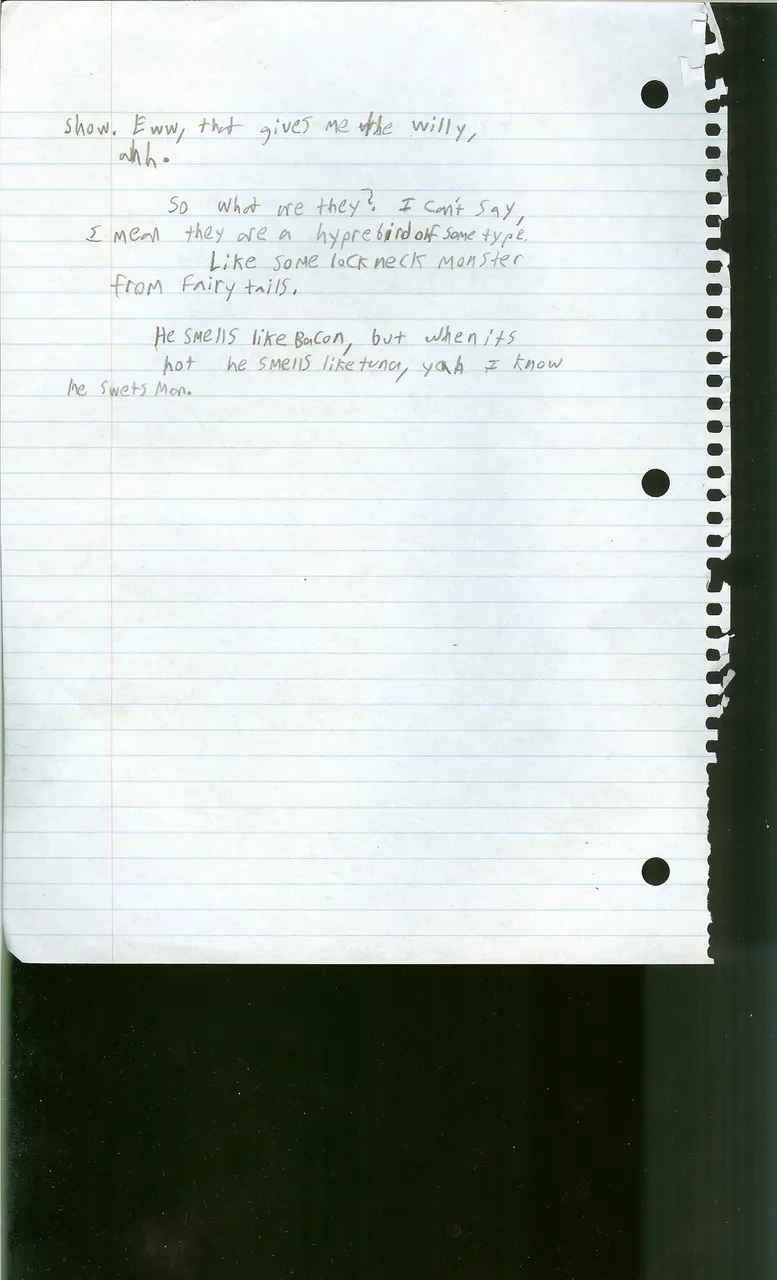 show. Eww, that gives me the willy,
ahh.
So what are they? I can't say,
I mean they are a hyprebird of some type.
Like some lock neck monster
from Fairy tails.
He smells like Bacon, but when its
hot he smells like tuna, yah I know
he swets Man.